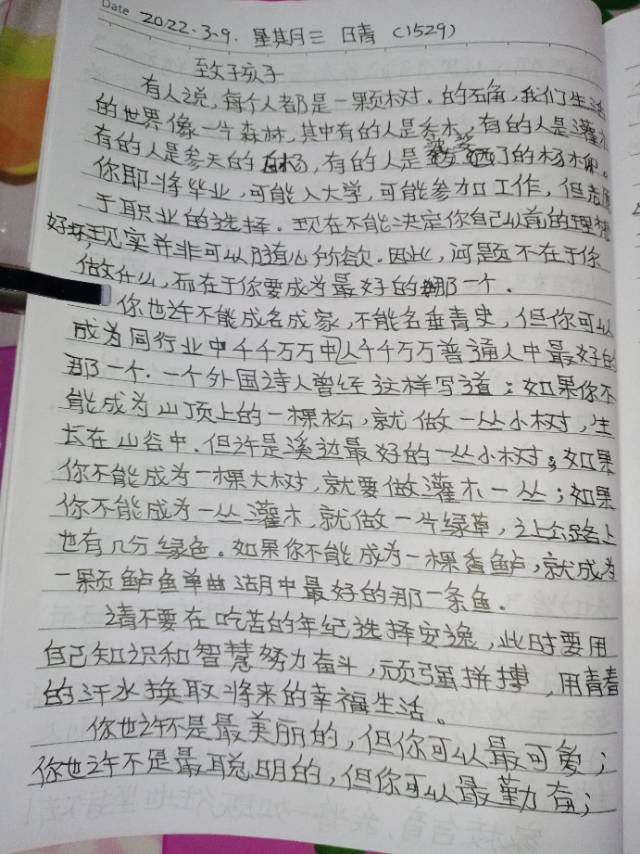 Date 2022.3.9. 星期三 日青 (1529)
致子孩子
有人说,每个人都是一颗树.的石角,我们生活
的世界像一片森林,其中有的人是乔木,有的人是灌木
有的人是参天的白杨,有的人是 了的杨柳.
你即将毕业,可能入大学,可能参加工作,但志愿
于职业的选择.现在不能决定你自己以前的理想
好坏,现实并非可以随心所欲.因此,问题不在于你
做什么,而在于你要成为最好的那一个.
你也许不能成名成家,不能名垂青史,但你可以
成为同行业中千千万万中人千千万万普通人中最好的
那一个.一个外国诗人曾经这样写道:如果你不
能成为山顶上的一棵松,就做一丛小树,生
长在山谷中.但许是溪边最好的一丛小树;如果
你不能成为一棵大树,就要做灌木一丛;如果
你不能成为一丛灌木,就做一片绿草,让公路上
也有几分绿色.如果你不能成为一棵香鲈,就成为
一颗鲈鱼单曲湖中最好的那一条鱼.
请不要在吃苦的年纪选择安逸,此时要用
自己知识和智慧努力奋斗,顽强拼搏,用青春
的汗水换取将来的幸福生活.
你也许不是最美丽的,但你可以最可爱;
你也许不是最聪明的,但你可以最勤奋;